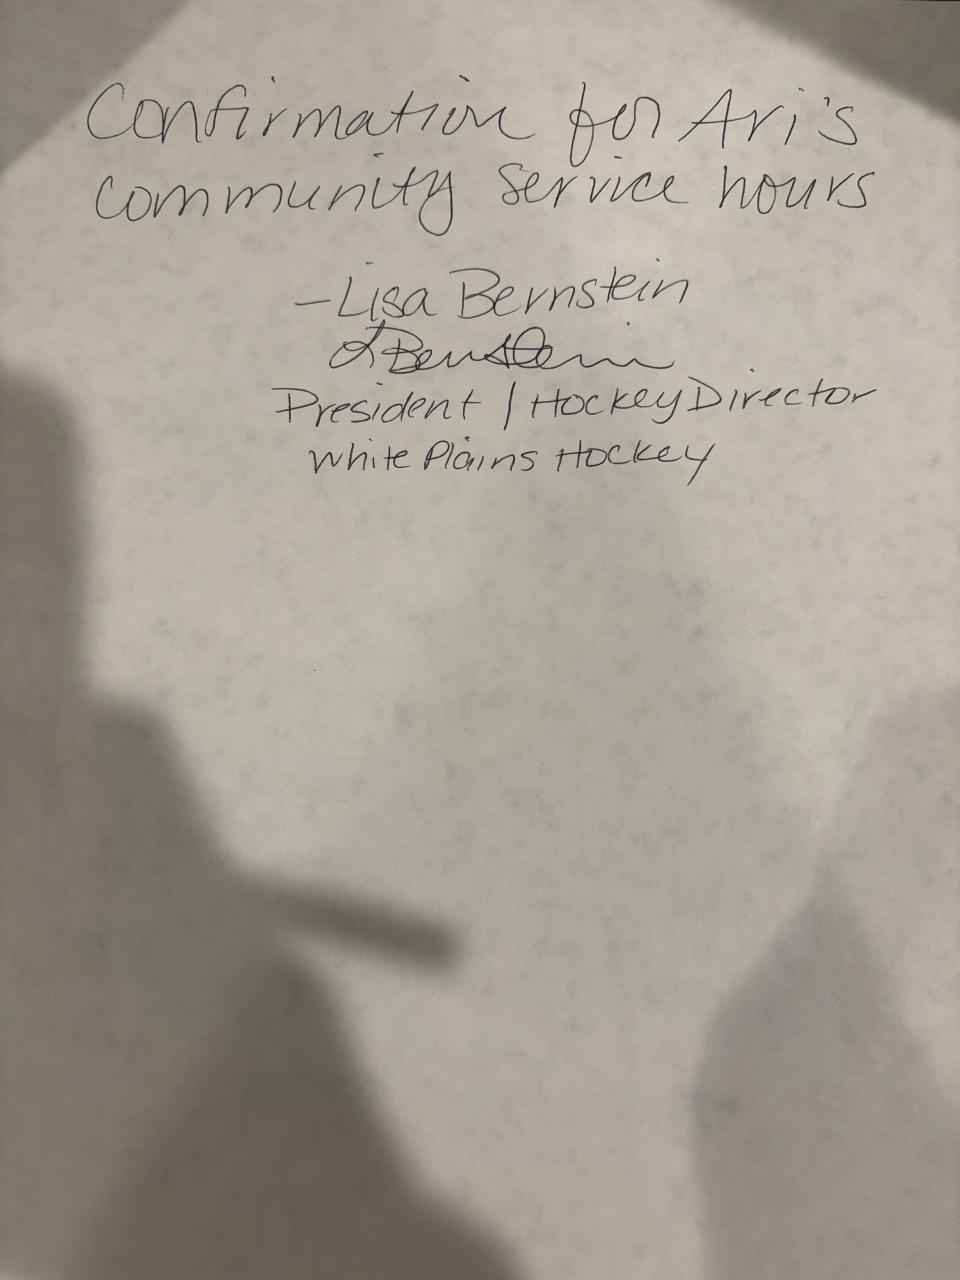 Confirmation for Ari's
community service hours
-Lisa Bernstein
LBernstein
President / Hockey Director
White Plains Hockey